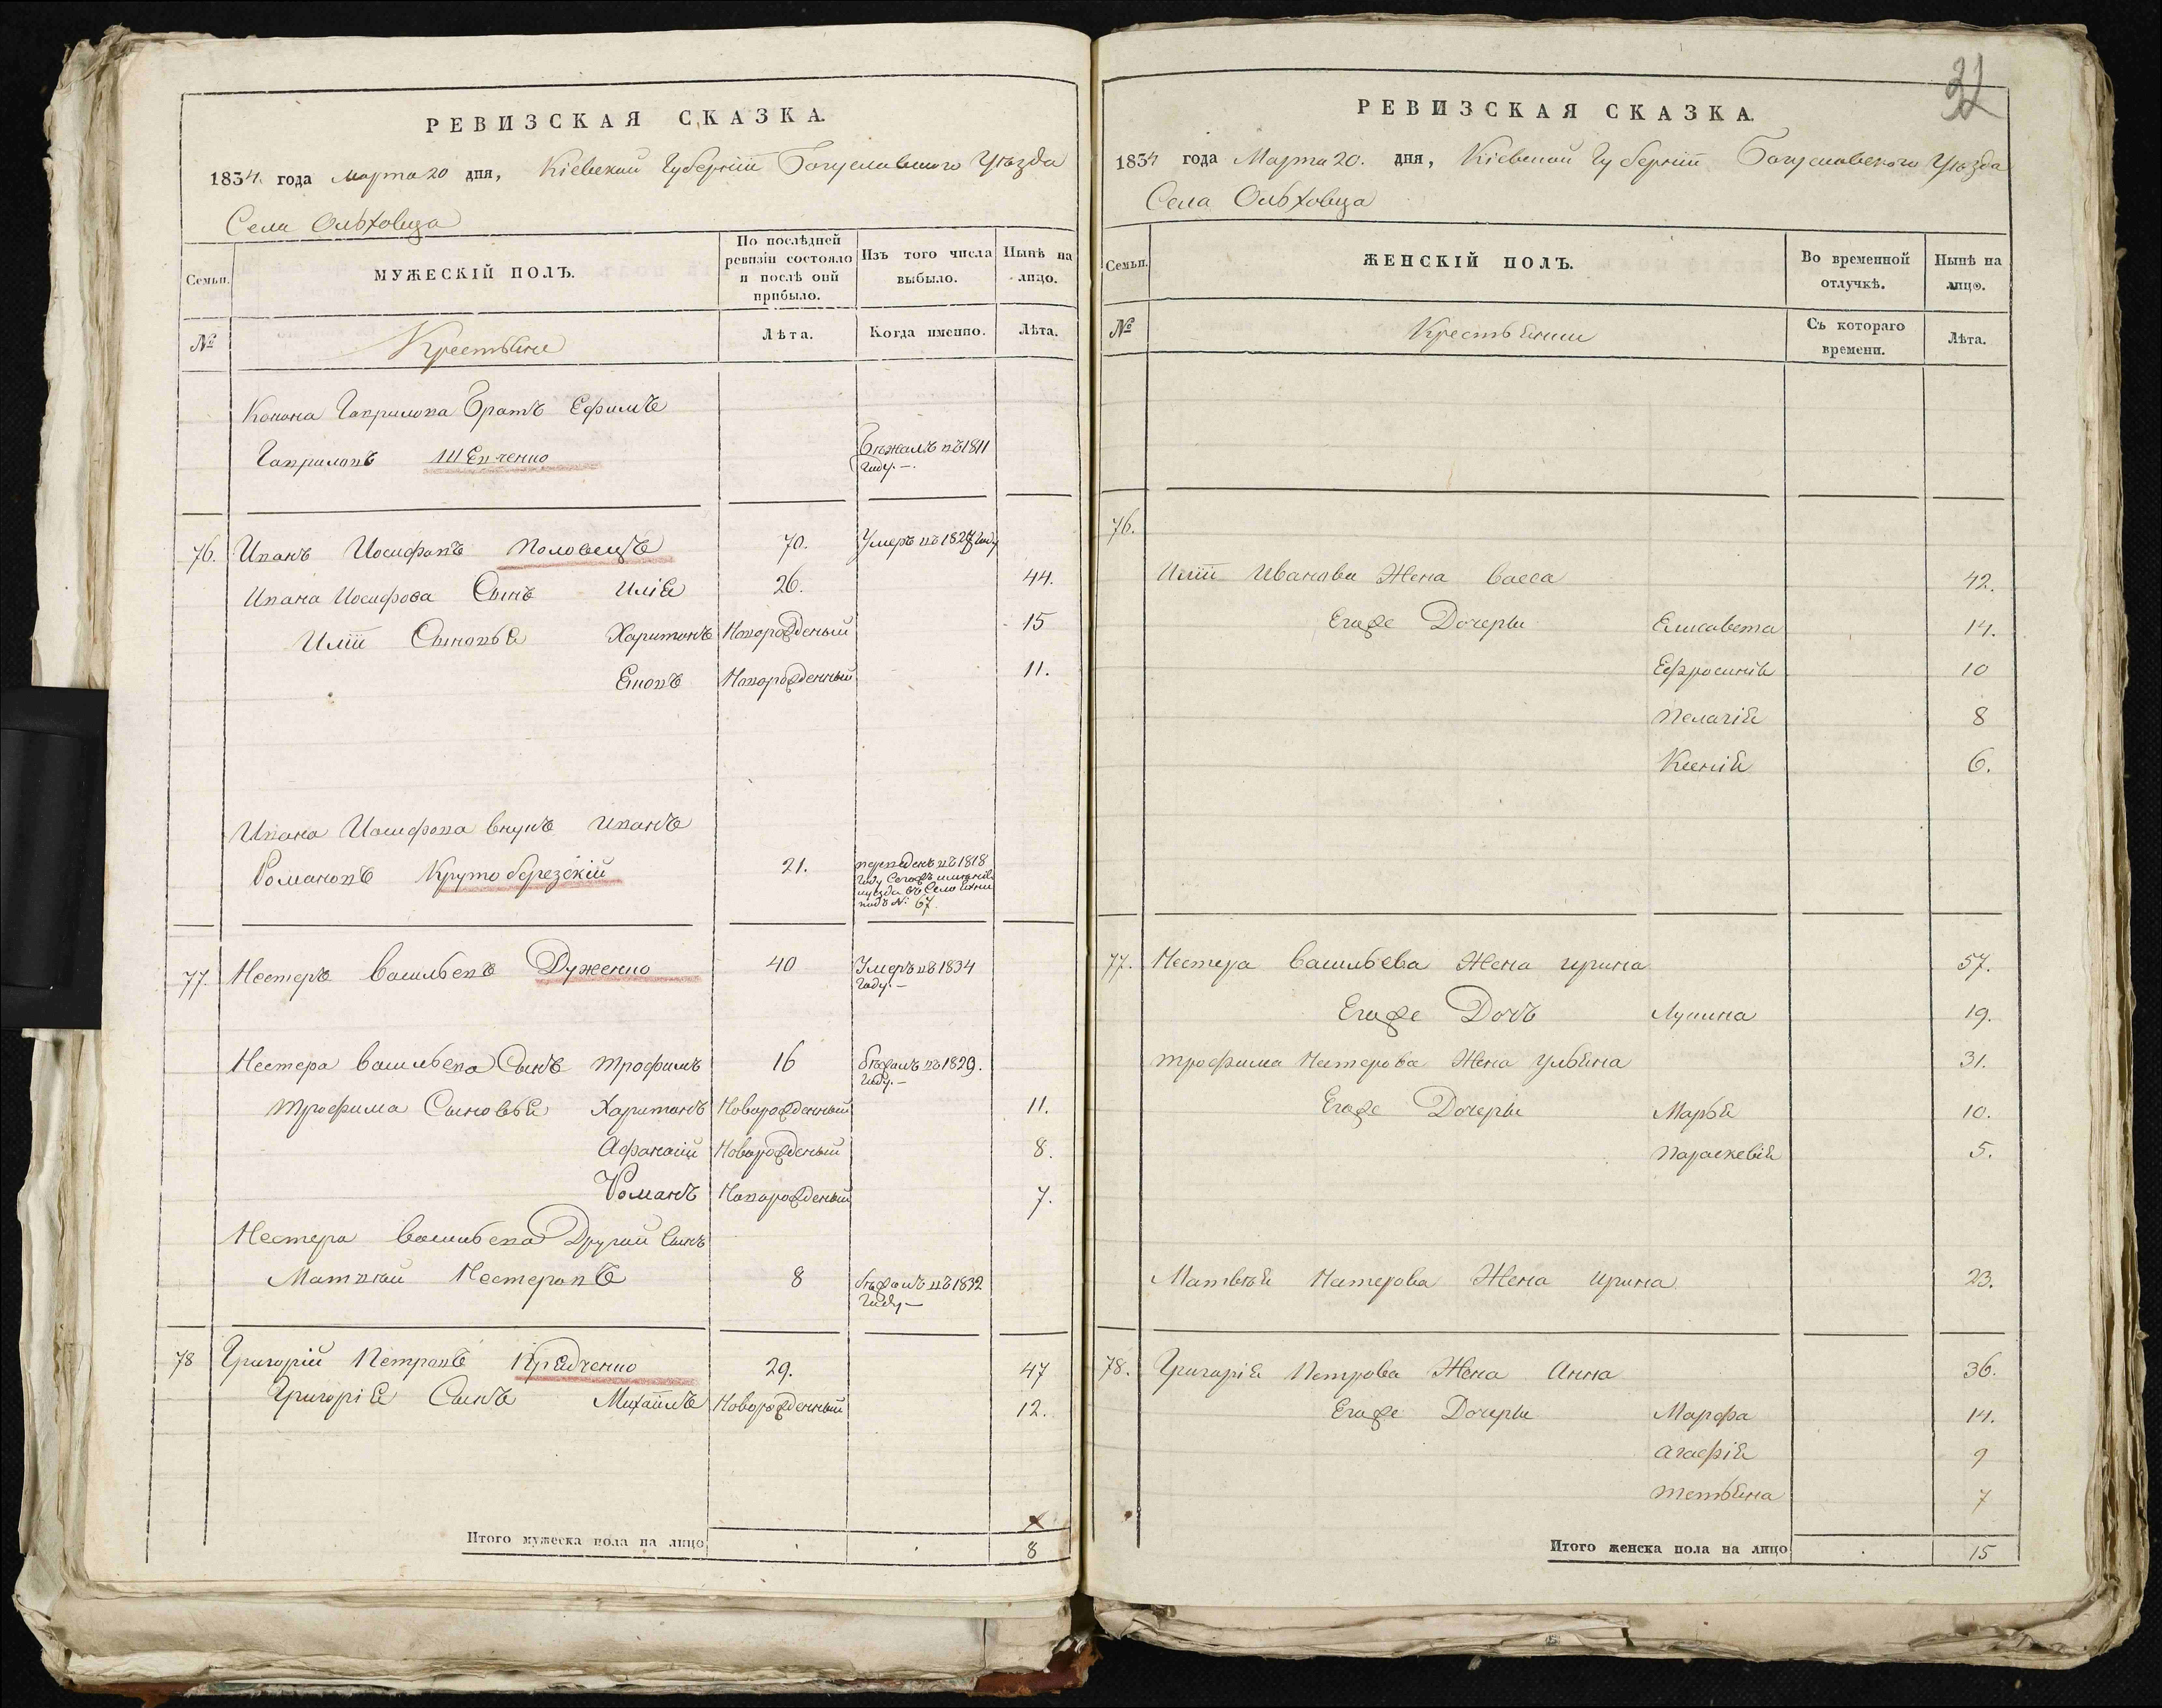 РЕВИЗСКАЯ СКАЗКА.
1834. года Марта 20 дня, Кіевской Губерніи Богуславского Уѣзда
Села Ольховца
Семьи.
МУЖЕСКІЙ ПОЛЪ.
По послѣдней ревизіи состояло и послѣ оній прибыло.
Изъ того числа выбыло.
Нынѣ на лицо.
№
Крестьяне
Лѣта.
Когда именно.
Лѣта.
Конона Гаврилова Братъ Ефимъ
Гавриловъ Шевченко Бѣжалъ въ 1811
Году. —.
76. Иванъ Иосифовъ Половецъ 70. Умеръ въ 1827 Году
Ивана Иосифова Сынъ Илія 26. 44.
Иліи Сыновья Харитонъ Новорожденый 15
Новорожденный 11.
Ивана Иосифова внукъ Иванъ
Романовъ Крутоберезскій 21. переведенъ въ 1818
Году
уезда въ Село
подъ № 67.
77. Нестеръ Васильевъ Дуженко 40 Умеръ въ 1834
Году. —
Нестера Васильева Сынъ Трофимъ 16 бѣжалъ въ 1829.
Году. —
Трофима Сыновья Харитонъ Новорожденный 11.
Афанасий Новорожденый 8.
Романъ Новорожденый 7.
Нестера Васильева Другий Сынъ
Матвѣй Нестеровъ 8 бѣжалъ въ 1832
Году —
78 Григорій Петровъ Кравченко 29. 47
Григорія Сынъ Михаилъ Новорожденный 12.
Итого мужеска пола на лицо 8
32
РЕВИЗСКАЯ СКАЗКА.
1834 года Марта 20. дня, Кіевской Губерніи Богуславского Уѣзда
Села Ольховца
Семьи.
ЖЕНСКІЙ ПОЛЪ.
Во временной отлучкѣ.
Нынѣ на лицо.
№
Крестьянки
Съ котораго времени.
Лѣта.
76.
Иліи Иванова Жена Васса 42.
Егоже Дочеры Елисавета 14.
Ефросинія 10
Пелагія 8
Ксенія 6.
77. Нестера Васильева Жена Ирина 57.
Егоже Дочь 19.
Трофима Нестерова Жена Ульяна 31.
Егоже Дочеры Марья 10.
Параскевія 5.
Матвѣя Нестерова Жена Ирина 23.
78. Григорія Петрова Жена Анна 36.
Егоже Дочеры Марфа 14.
Агафія 9
Тетьяна 7
Итого женска пола на лицо 15